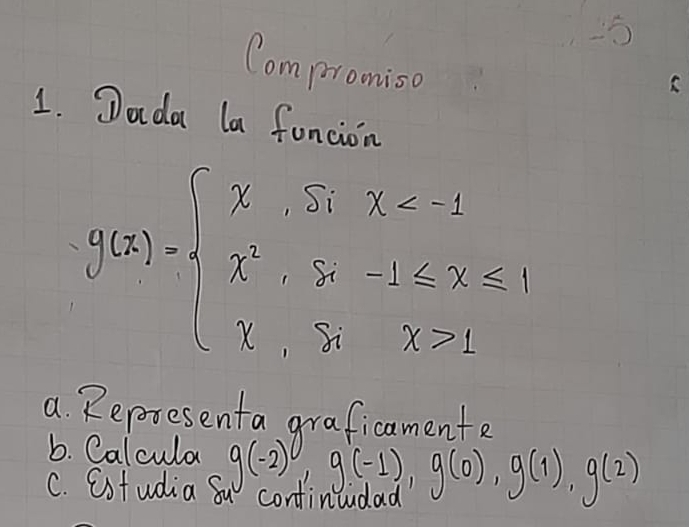 Compromiso
1. Dada la función
g(x) = { x , Si x < -1
x² , Si -1 ≤ x ≤ 1
x , Si x > 1
a. Representa graficamente
b. Calcula g(-2), g(-1), g(0), g(1), g(2)
c. Estudia Su continuidad